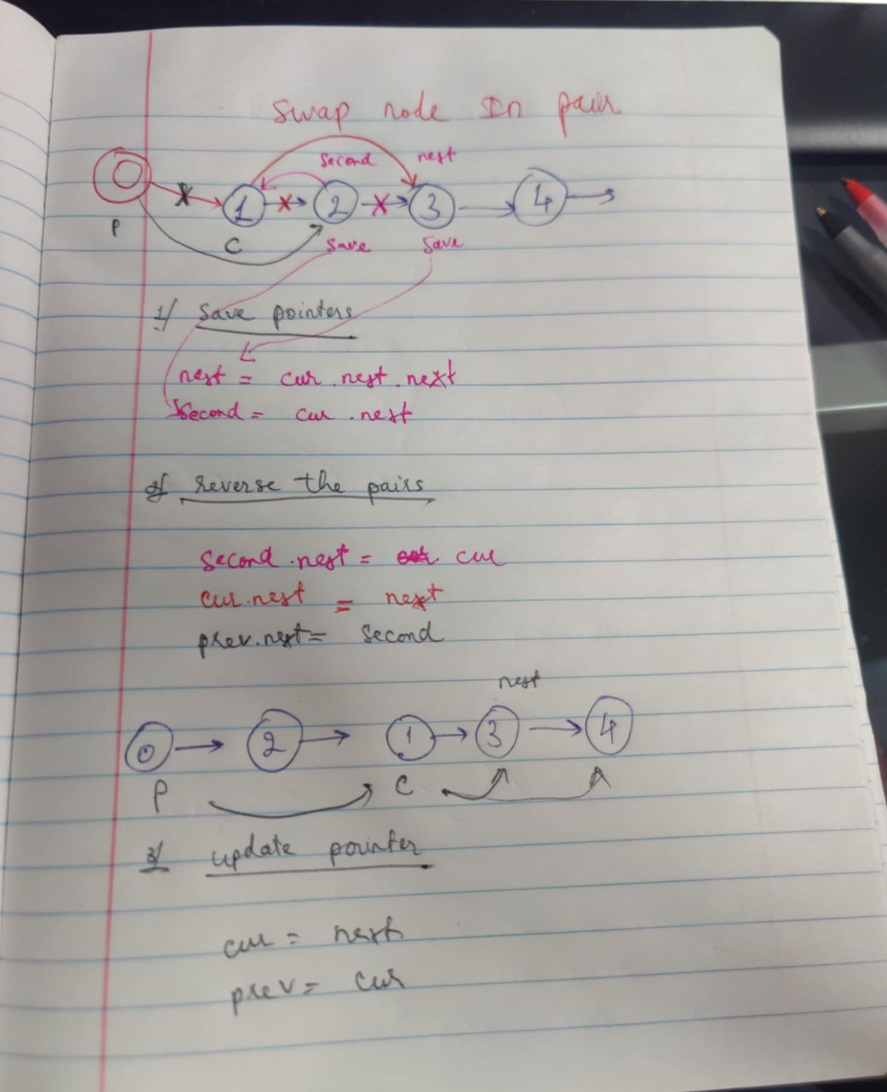 Swap node In pair
Second next
0 1 2 3 4
P C Save Save
1/ Save pointers
next = cur.next.next
Second = cur.next
2/ reverse the pairs
Second.next = cur
cur.next = next
prev.next = Second
next
0 2 1 3 4
P C
3/ update pointer
cur = next
prev = cur